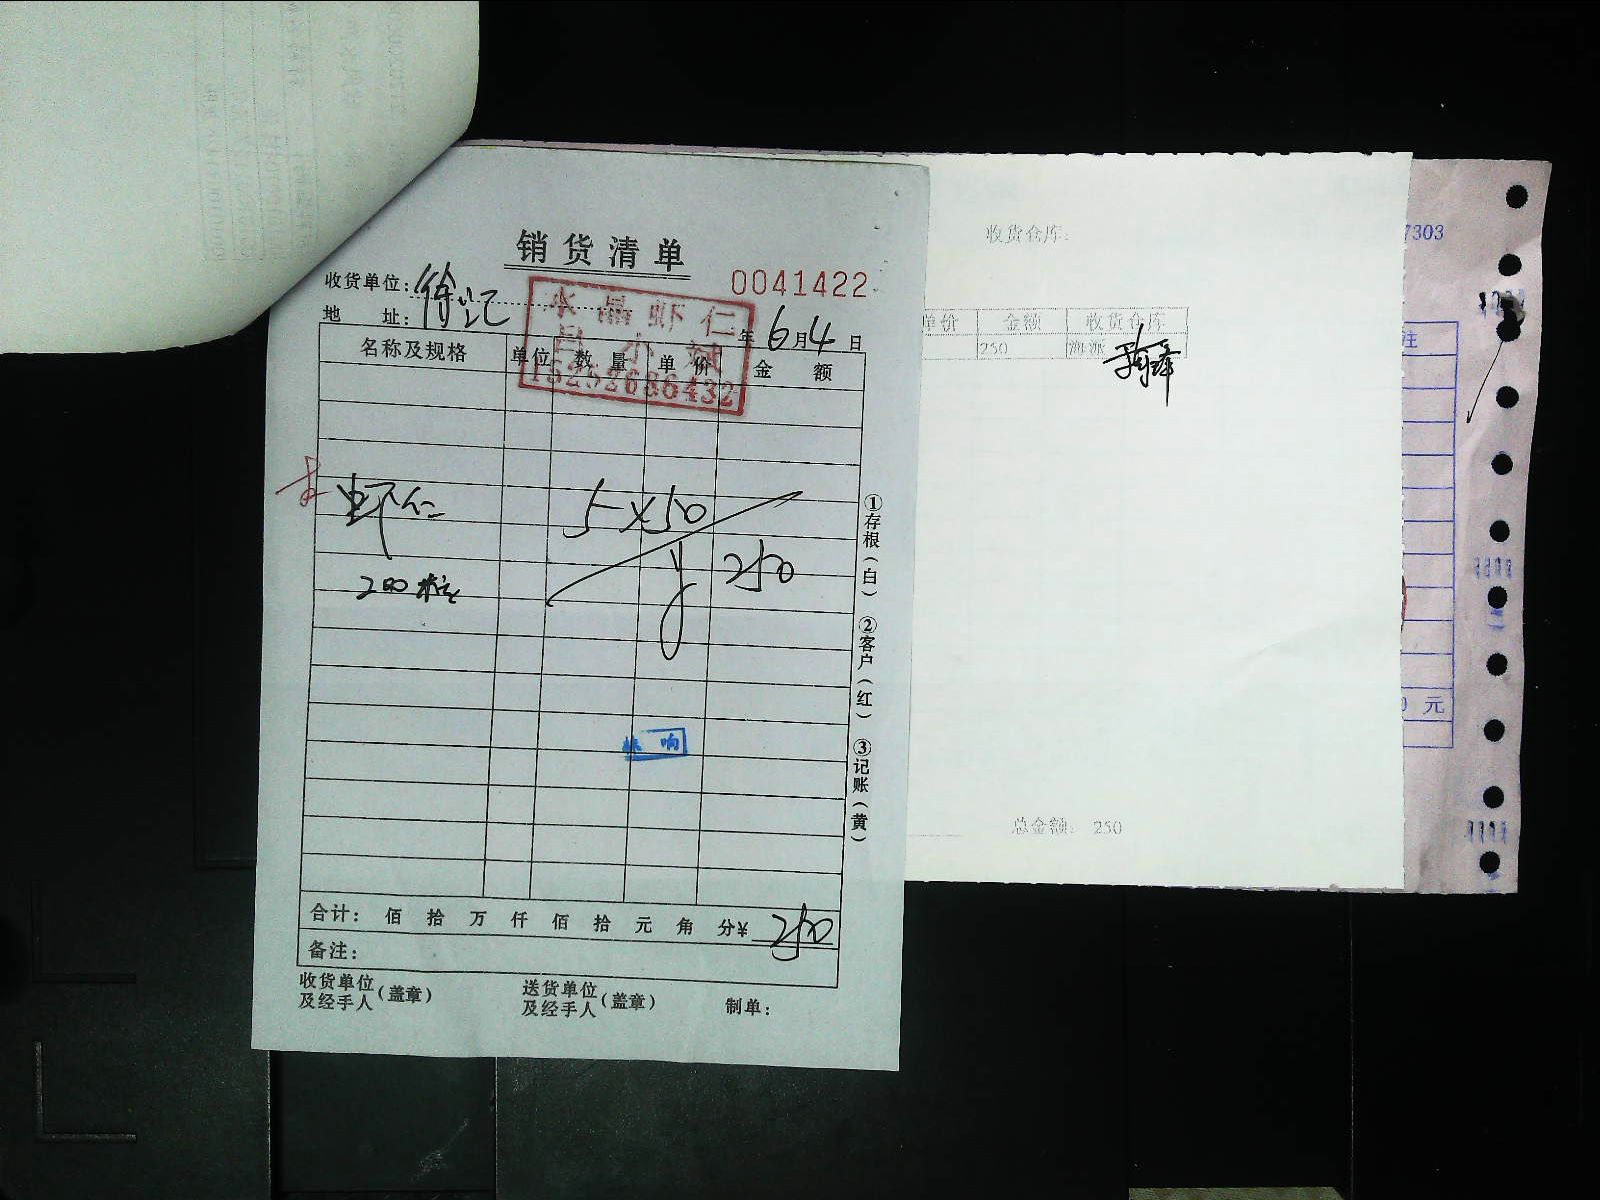 销货清单
0041422
收货单位：徐记
地 址：
年6月4日
水晶虾仁
15252686432
名称及规格 单位 数量 单价 金额
虾仁 5×50
250
200粒
①存根（白） ②客户（红） ③记账（黄）
合计： 佰 拾 万 仟 佰 拾 元 角 分¥ 250
备注：
收货单位及经手人（盖章） 送货单位及经手人（盖章） 制单：
收货仓库：
单价 金额 收货仓库
250
总金额： 250
7303
注
元